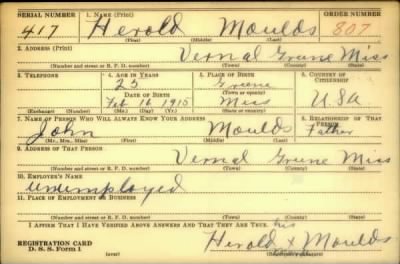 SERIAL NUMBER 1. NAME (Print) ORDER NUMBER
417 Herold Moulds 807
(First) (Middle) (Last)
2. ADDRESS (Print)
Vernal Greene Miss
(Number and street or R. F. D. number) (Town) (County) (State)
3. TELEPHONE 4. AGE IN YEARS 5. PLACE OF BIRTH 6. COUNTRY OF CITIZENSHIP
25 Greene
DATE OF BIRTH (Town or county)
Feb 16 1915 Miss U.S.A
(Exchange) (Number) (Mo.) (Day) (Yr.) (State or country)
7. NAME OF PERSON WHO WILL ALWAYS KNOW YOUR ADDRESS 8. RELATIONSHIP OF THAT PERSON
John Moulds Father
(Mr., Mrs., Miss) (First) (Middle) (Last)
9. ADDRESS OF THAT PERSON
Vernal Greene Miss
(Number and street or R. F. D. number) (Town) (County) (State)
10. EMPLOYER'S NAME
unemployed
11. PLACE OF EMPLOYMENT OR BUSINESS
(Number and street or R. F. D. number) (Town) (County) (State)
I AFFIRM THAT I HAVE VERIFIED ABOVE ANSWERS AND THAT THEY ARE TRUE.
his
REGISTRATION CARD Herold x Moulds
D. S. S. Form 1 (over)